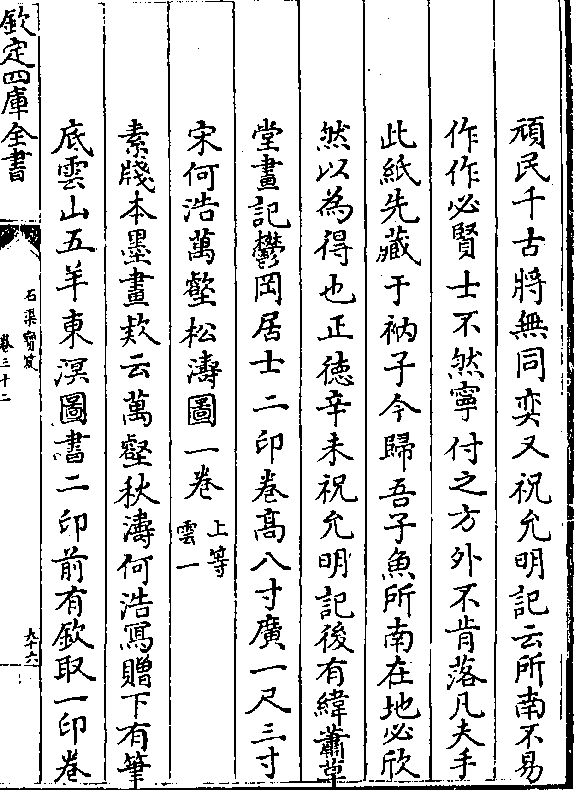 頑民千古將無同奕又祝允明記云所南不易
作作必賢士不然寧付之方外不肯落凡夫手
此紙先藏于衲子今歸吾子魚所南在地必欣
然以為得也正德辛未祝允明記後有緯蕭草
堂畫記鬱岡居士二印卷髙八寸廣一尺三寸
宋何浩萬壑松濤圖一卷 上等
雲一
素牋本墨畫欵云萬壑秋濤何浩寫贈下有筆
底雲山五羊東溟圖書二印前有欽取一印卷
欽定四庫全書
石渠寳笈
卷三十二
九十六